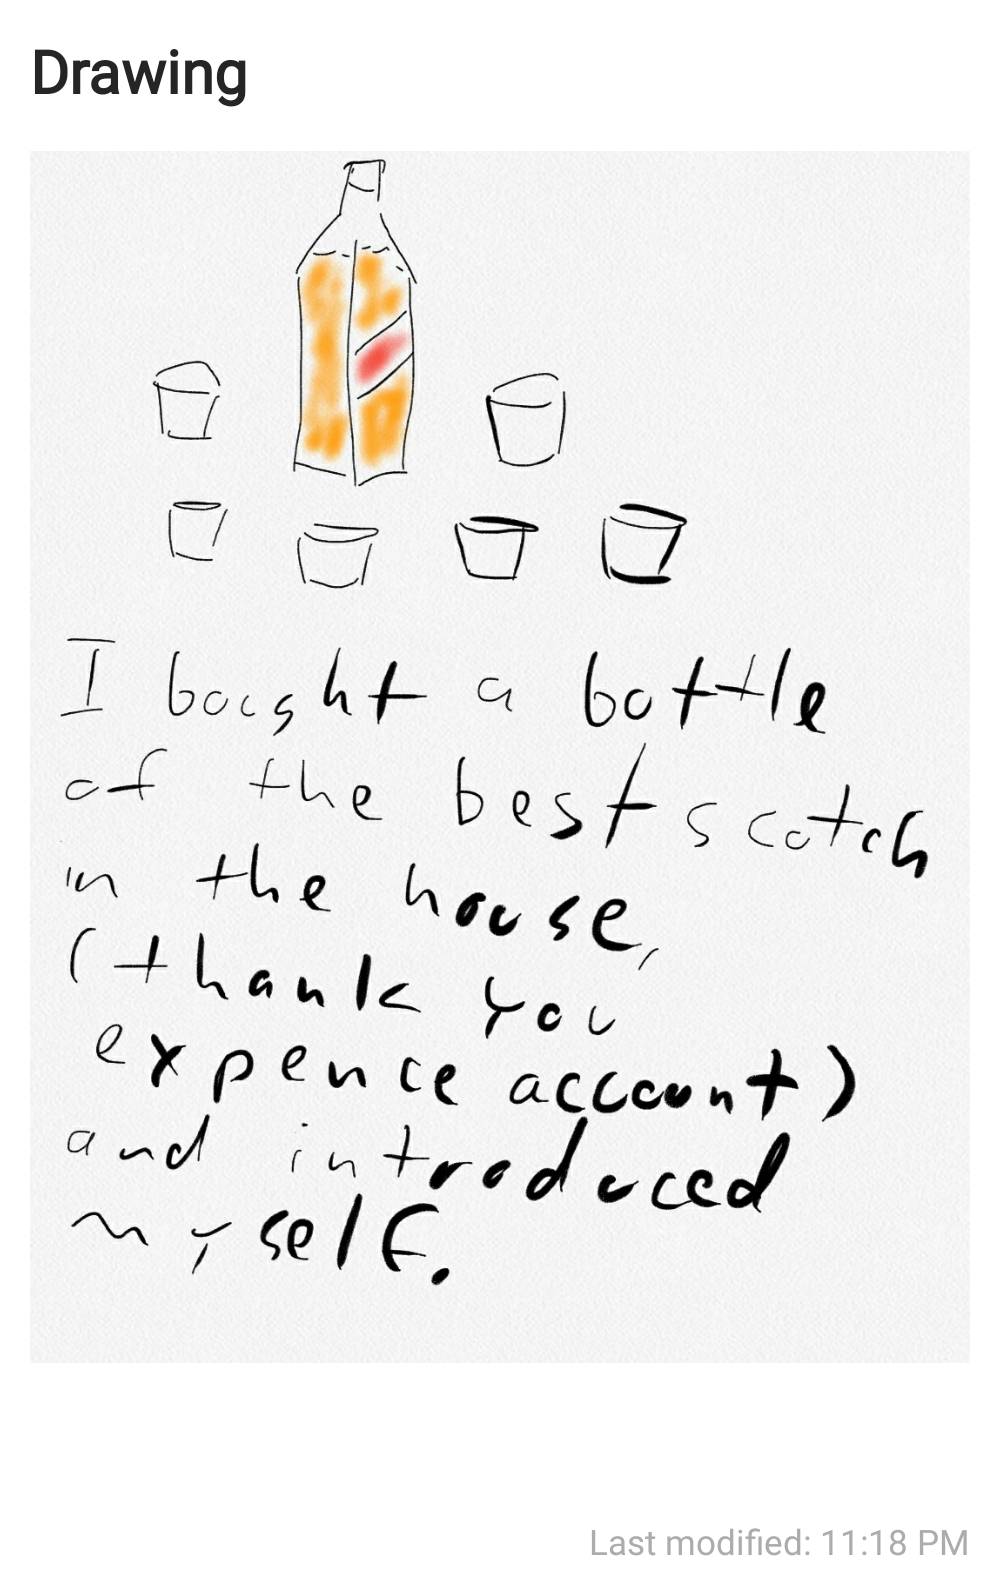 Drawing
I bought a bottle
of the best scotch
in the house,
(thank you
expence account)
and introduced
myself.
Last modified: 11:18 PM